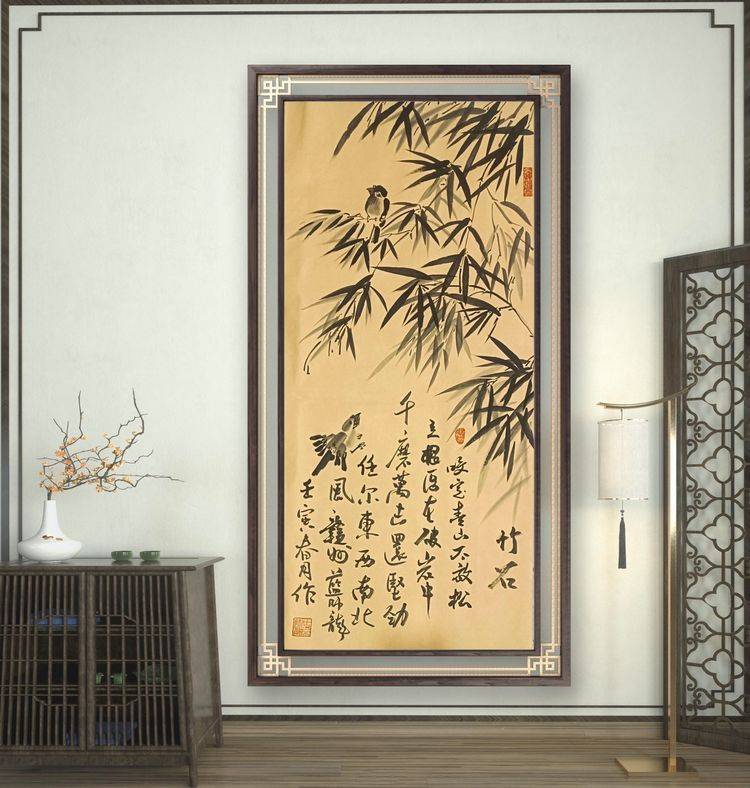 竹石
咬定青山不放松
立根在破岩中
千磨萬击還堅勁
任尔東西南北
風
壬寅春月作